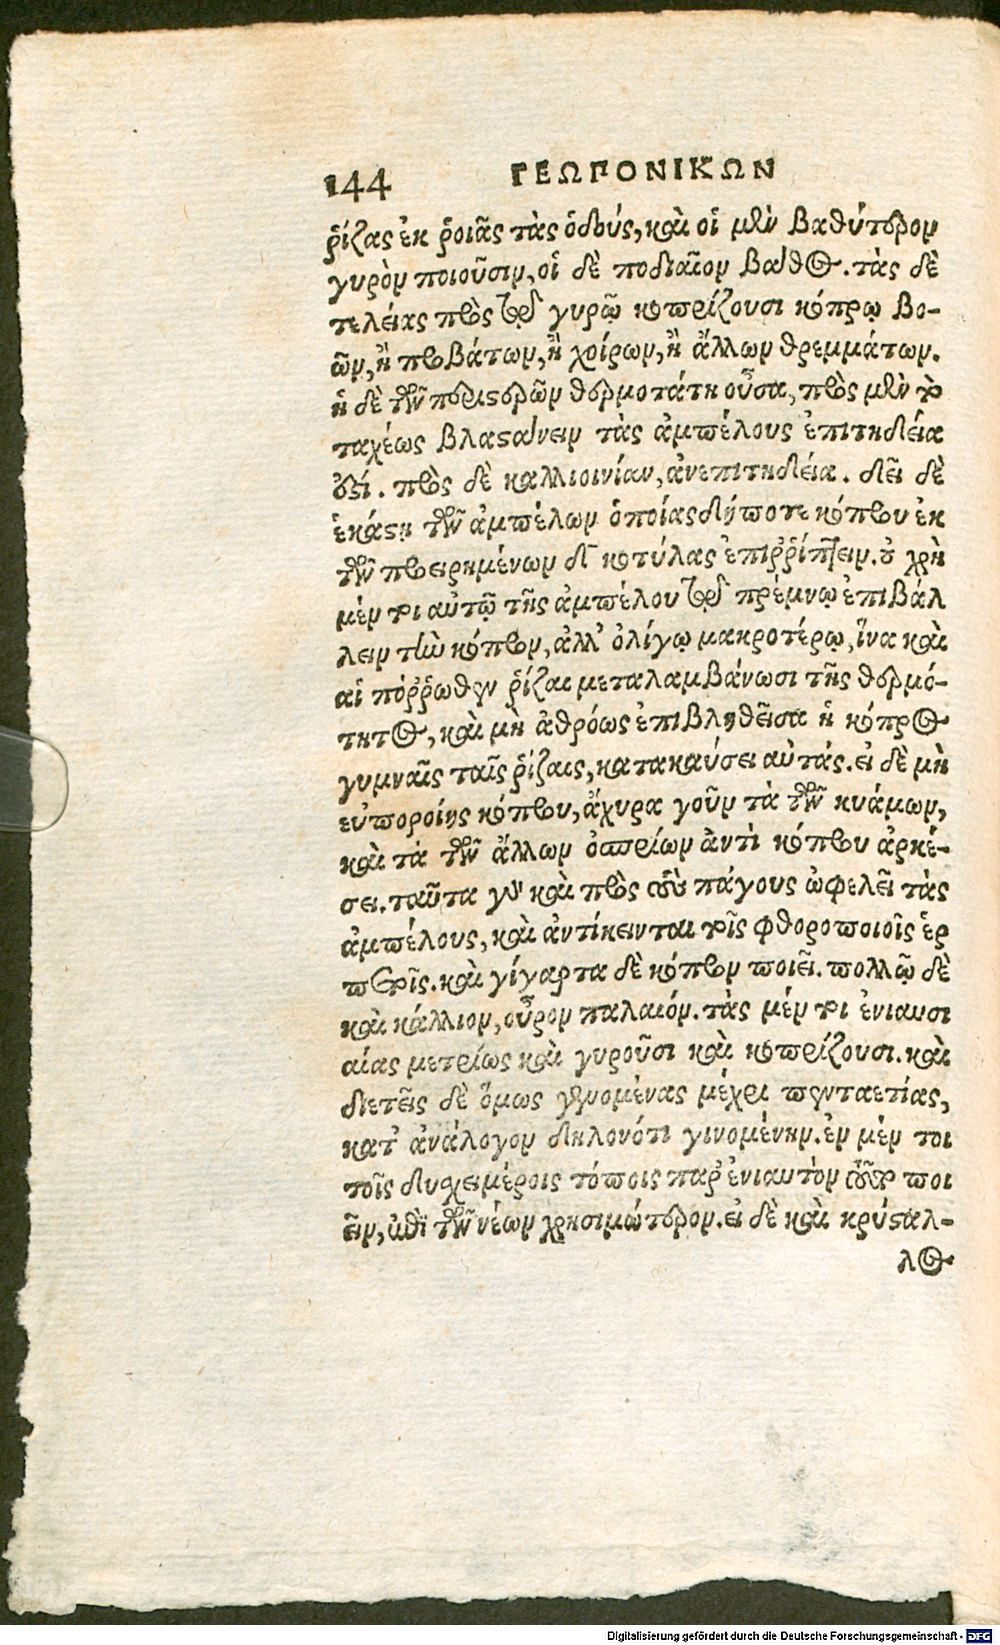 144 ΓΕΩΠΟΝΙΚΩΝ
ῥίζας ἐκ ῥοιᾶς τὰς ὁδούς, καὶ οἱ μὲν βαθύτερον
γυρὸν ποιοῦσιν, οἱ δὲ ποδιαῖον βάθος. τὰς δὲ
τελείας πρὸς τῷ γυρῷ κοπρίζουσι κόπρῳ βο-
ῶν, ἢ προβάτων, ἢ χοίρων, ἢ ἄλλων θρεμμάτων.
ἡ δὲ τῶν περιστερῶν θερμοτάτη οὖσα, πρὸς μὲν τὸ
ταχέως βλαστάνειν τὰς ἀμπέλους ἐπιτηδεία
ἐστί. πρὸς δὲ καλλιοινίαν, ἀνεπιτηδεία. δεῖ δὲ
ἑκάστῃ τῶν ἀμπέλων ὁποίας δήποτε κόπρου ἐκ
τῶν προειρημένων δ̄ κοτύλας ἐπιῤῥίπτειν. οὐ χρὴ
μέν τοι αὐτῷ τῆς ἀμπέλου τῷ πρέμνῳ ἐπιβάλ
λειν τὴν κόπρον, ἀλλ' ὀλίγῳ μακροτέρω, ἵνα καὶ
αἱ πόῤῥωθεν ῥίζαι μεταλαμβάνωσι τῆς θερμό-
τητος, καὶ μὴ ἀθρόως ἐπιβληθεῖσα ἡ κόπρος
γυμναῖς ταῖς ῥίζαις, κατακαύσει αὐτάς. εἰ δὲ μὴ
εὐποροίης κόπρου, ἄχυρα γοῦν τὰ τῶν κυάμων,
καὶ τὰ τῶν ἄλλων ὀσπρίων ἀντὶ κόπρου ἀρκέ-
σει. ταῦτα γὰρ καὶ πρὸς τοὺς πάγους ὠφελεῖ τὰς
ἀμπέλους, καὶ ἀντίκεινται τοῖς φθοροποιοῖς ἑρ
πετοῖς. καὶ γίγαρτα δὲ κόπρον ποιεῖ. πολλῷ δὲ
καὶ κάλλιον, οὖρον παλαιόν. τὰς μέν τοι ἐνιαυσι
αίας μετρίως καὶ γυροῦσι καὶ κοπρίζουσι. καὶ
διετεῖς δὲ ὅμως γενομένας μέχρι πενταετίας,
κατ' ἀνάλογον δηλονότι γινομένην. ἐν μέν τοι
τοῖς δυσχειμέροις τόποις παρ' ἐνιαυτὸν τοῦτο ποι
εῖν, ἐπὶ τῶν νέων χρησιμώτερον. εἰ δὲ καὶ κρύσταλ-
λος
Digitalisierung gefördert durch die Deutsche Forschungsgemeinschaft - DFG